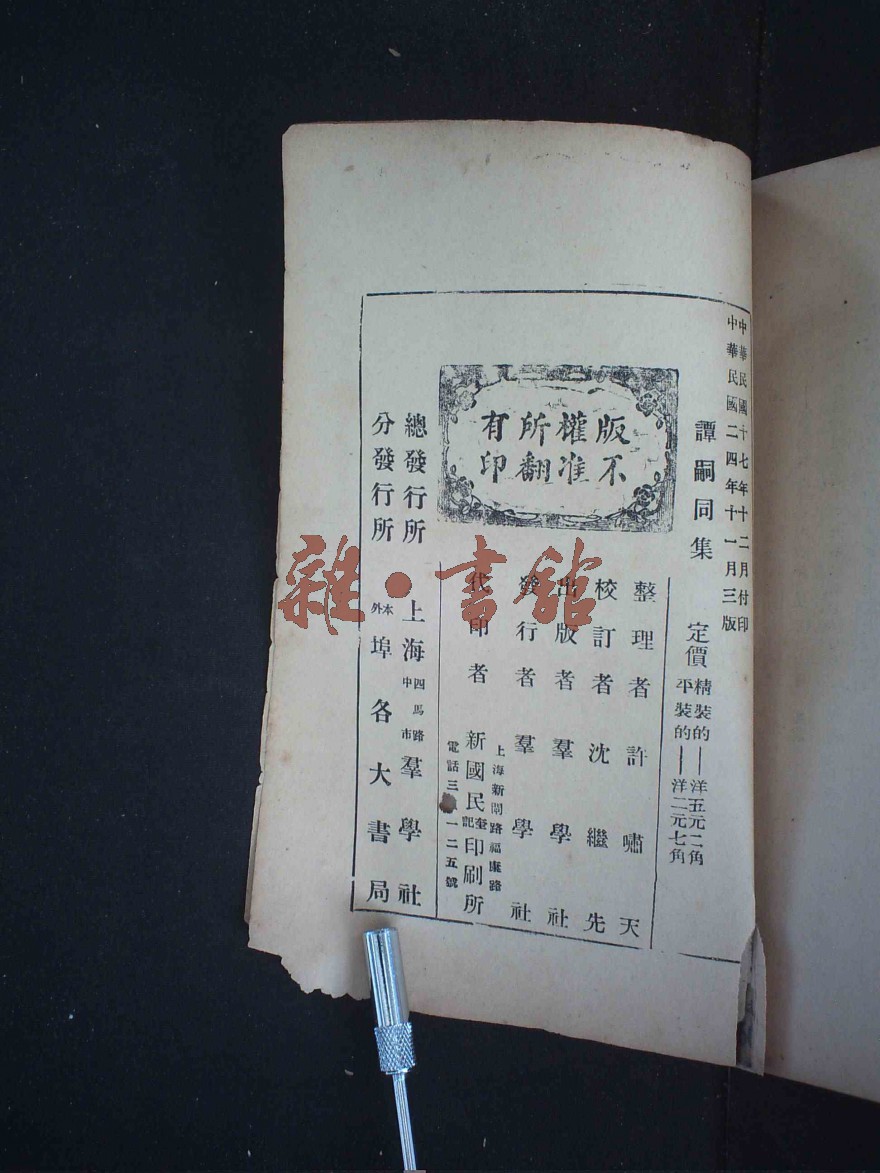 中華民國十七年十二月付印
中華民國二四年十一月三版
譚嗣同集 定價
精裝的——洋五元二角
平裝的——洋二元七角
版權所有
不准翻印
整理者 許嘯天
校訂者 沈繼先
出版者 羣學社
發行者 羣學社
上海新閘路福康路
代印者 新國民奎記印刷所
電話三一二五號
總發行所 上海四馬路中市羣學社
分發行所 本外埠各大書局
雜·書館